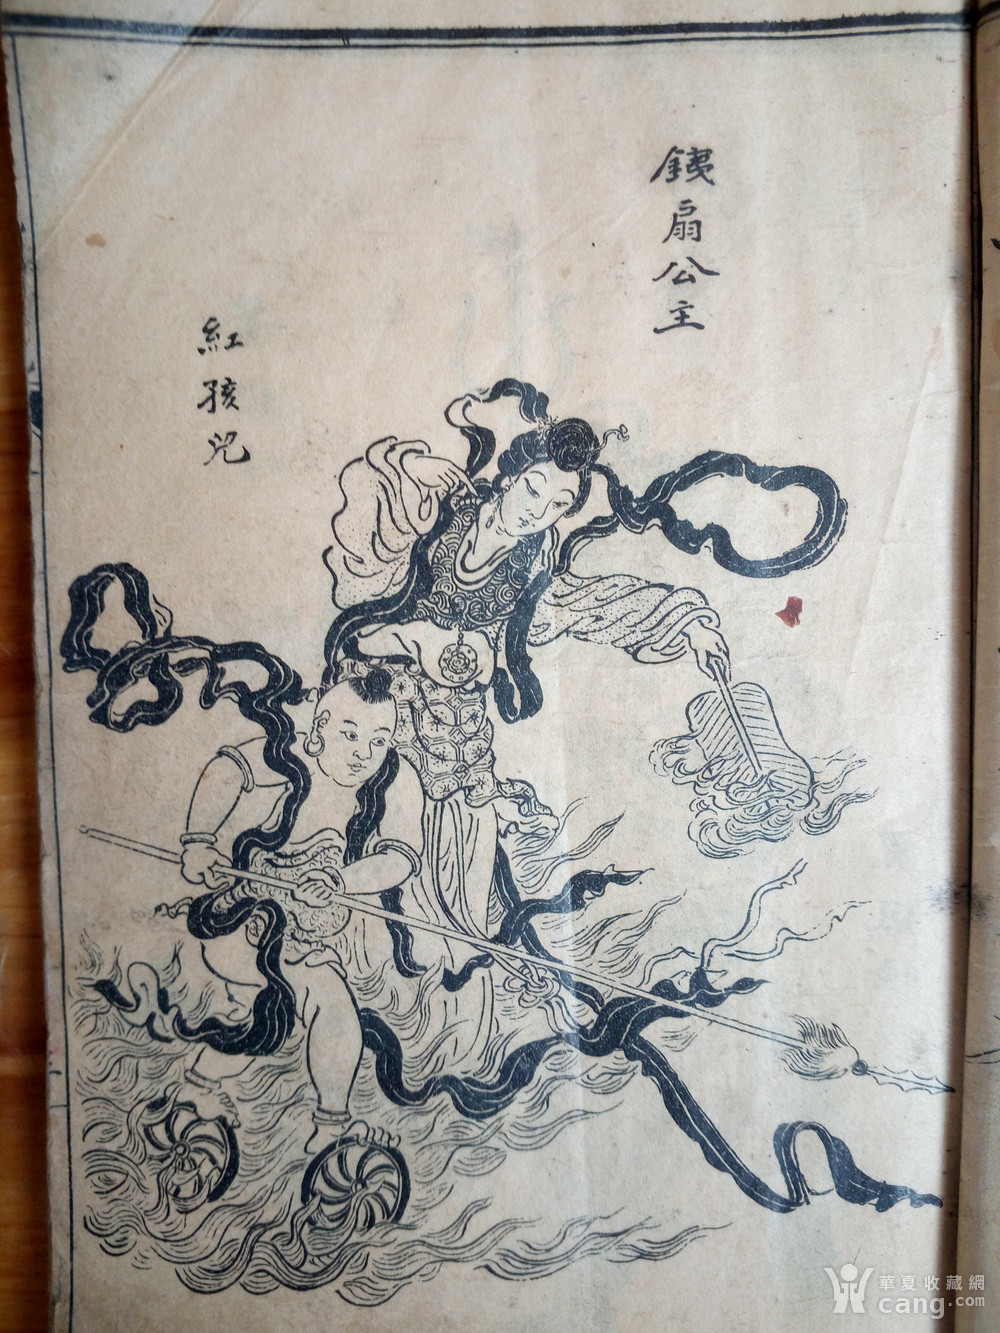 銕扇公主
紅孩兒
華夏收藏網
cang.com